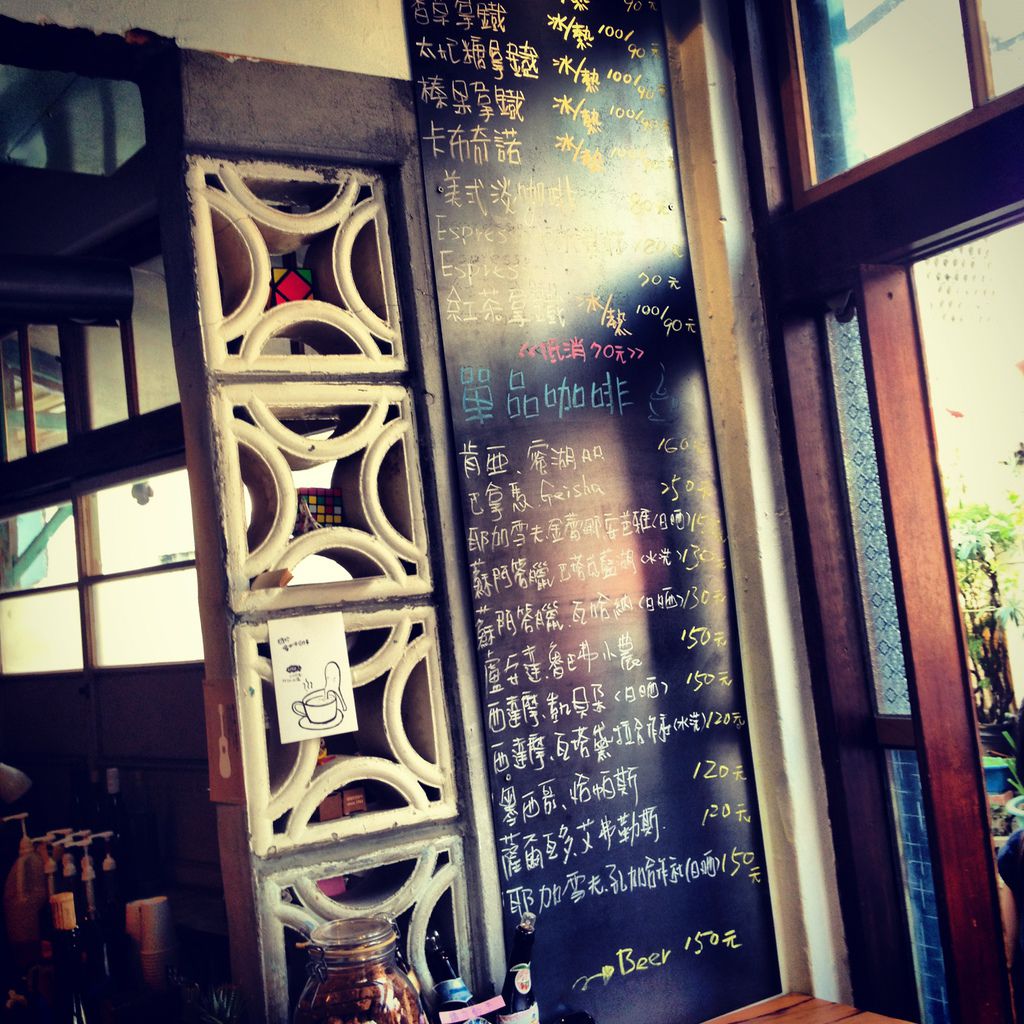 香草拿鐵 冰/熱 100/90元
太妃糖拿鐵 冰/熱 100/90元
榛果拿鐵 冰/熱 100/90元
卡布奇諾 冰/熱 100/90元
美式淡咖啡 80元
Espres 120元
Espres 70元
紅茶拿鐵 冰/熱 100/90元
<<低消70元>>
單品咖啡
肯亞、蜜湖AA 160
巴拿馬、Geisha 250
耶加雪夫、(日晒)
蘇門答臘、巴塔瓦藍湖(水洗)130
蘇門答臘、瓦哈納(日晒)130元
盧安達、魯巴弗小農 150元
西達摩、凱貝朵(日晒) 150元
西達摩、瓦塔黛拉合作社(水洗)120元
墨西哥、恰帕斯 120元
薩爾瓦多、艾弗勒斯 120元
耶加雪夫、孔加合作社(日晒)150元
Beer 150元